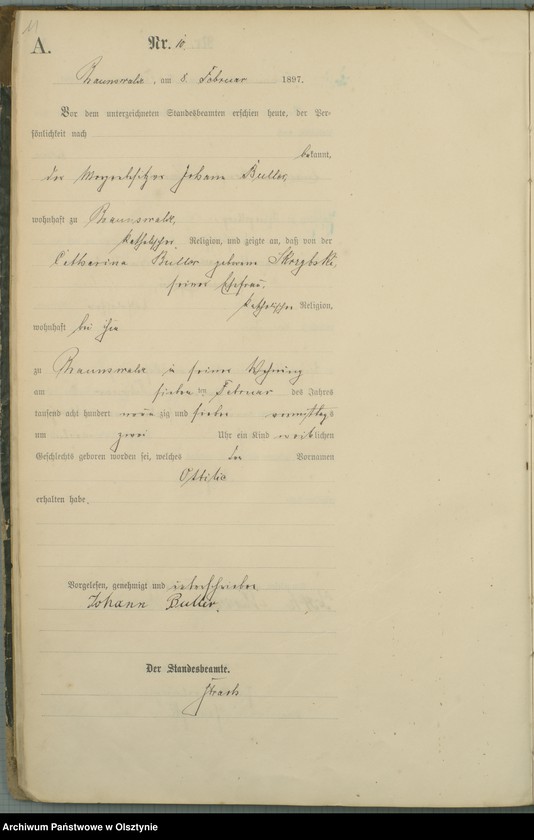 11
A.
Nr. 10.
Braunswalde, am 8. Februar 1897.
Vor dem unterzeichneten Standesbeamten erschien heute, der Per-
sönlichkeit nach
bekannt,
der Johann Buller,
wohnhaft zu Braunswalde,
katholischer Religion, und zeigte an, daß von der
Catharina Buller geborene
seiner Ehefrau,
katholischer Religion,
wohnhaft bei ihm
zu Braunswalde in seiner Wohnung
am sieben ten Februar des Jahres
tausend acht hundert neun zig und sieben vormittags
um zwei Uhr ein Kind weiblichen
Geschlechts geboren worden sei, welches den Vornamen
Ottilie
erhalten habe.
Vorgelesen, genehmigt und unterschrieben
Johann Buller.
Der Standesbeamte.
Archiwum Państwowe w Olsztynie